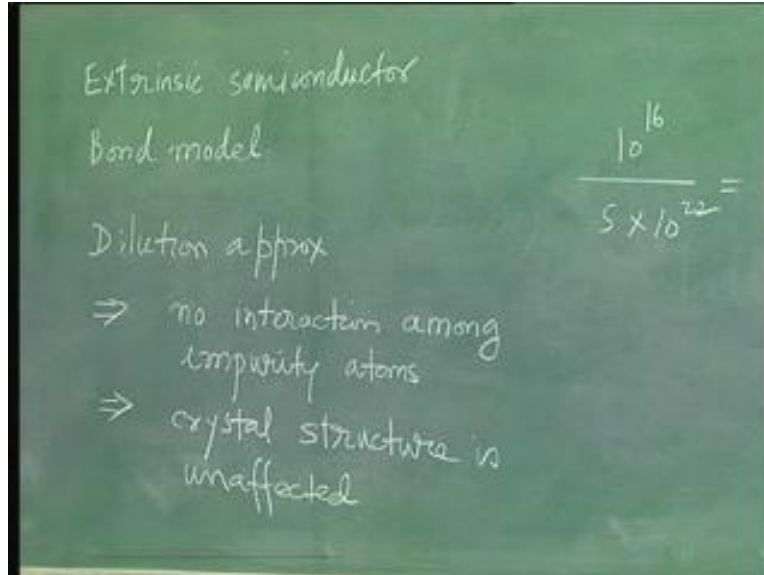 Extrinsic semiconductor
Bond model
Dilution approx
⇒ no interaction among
impurity atoms
⇒ crystal structure is
unaffected
10^16
5 × 10^22 =